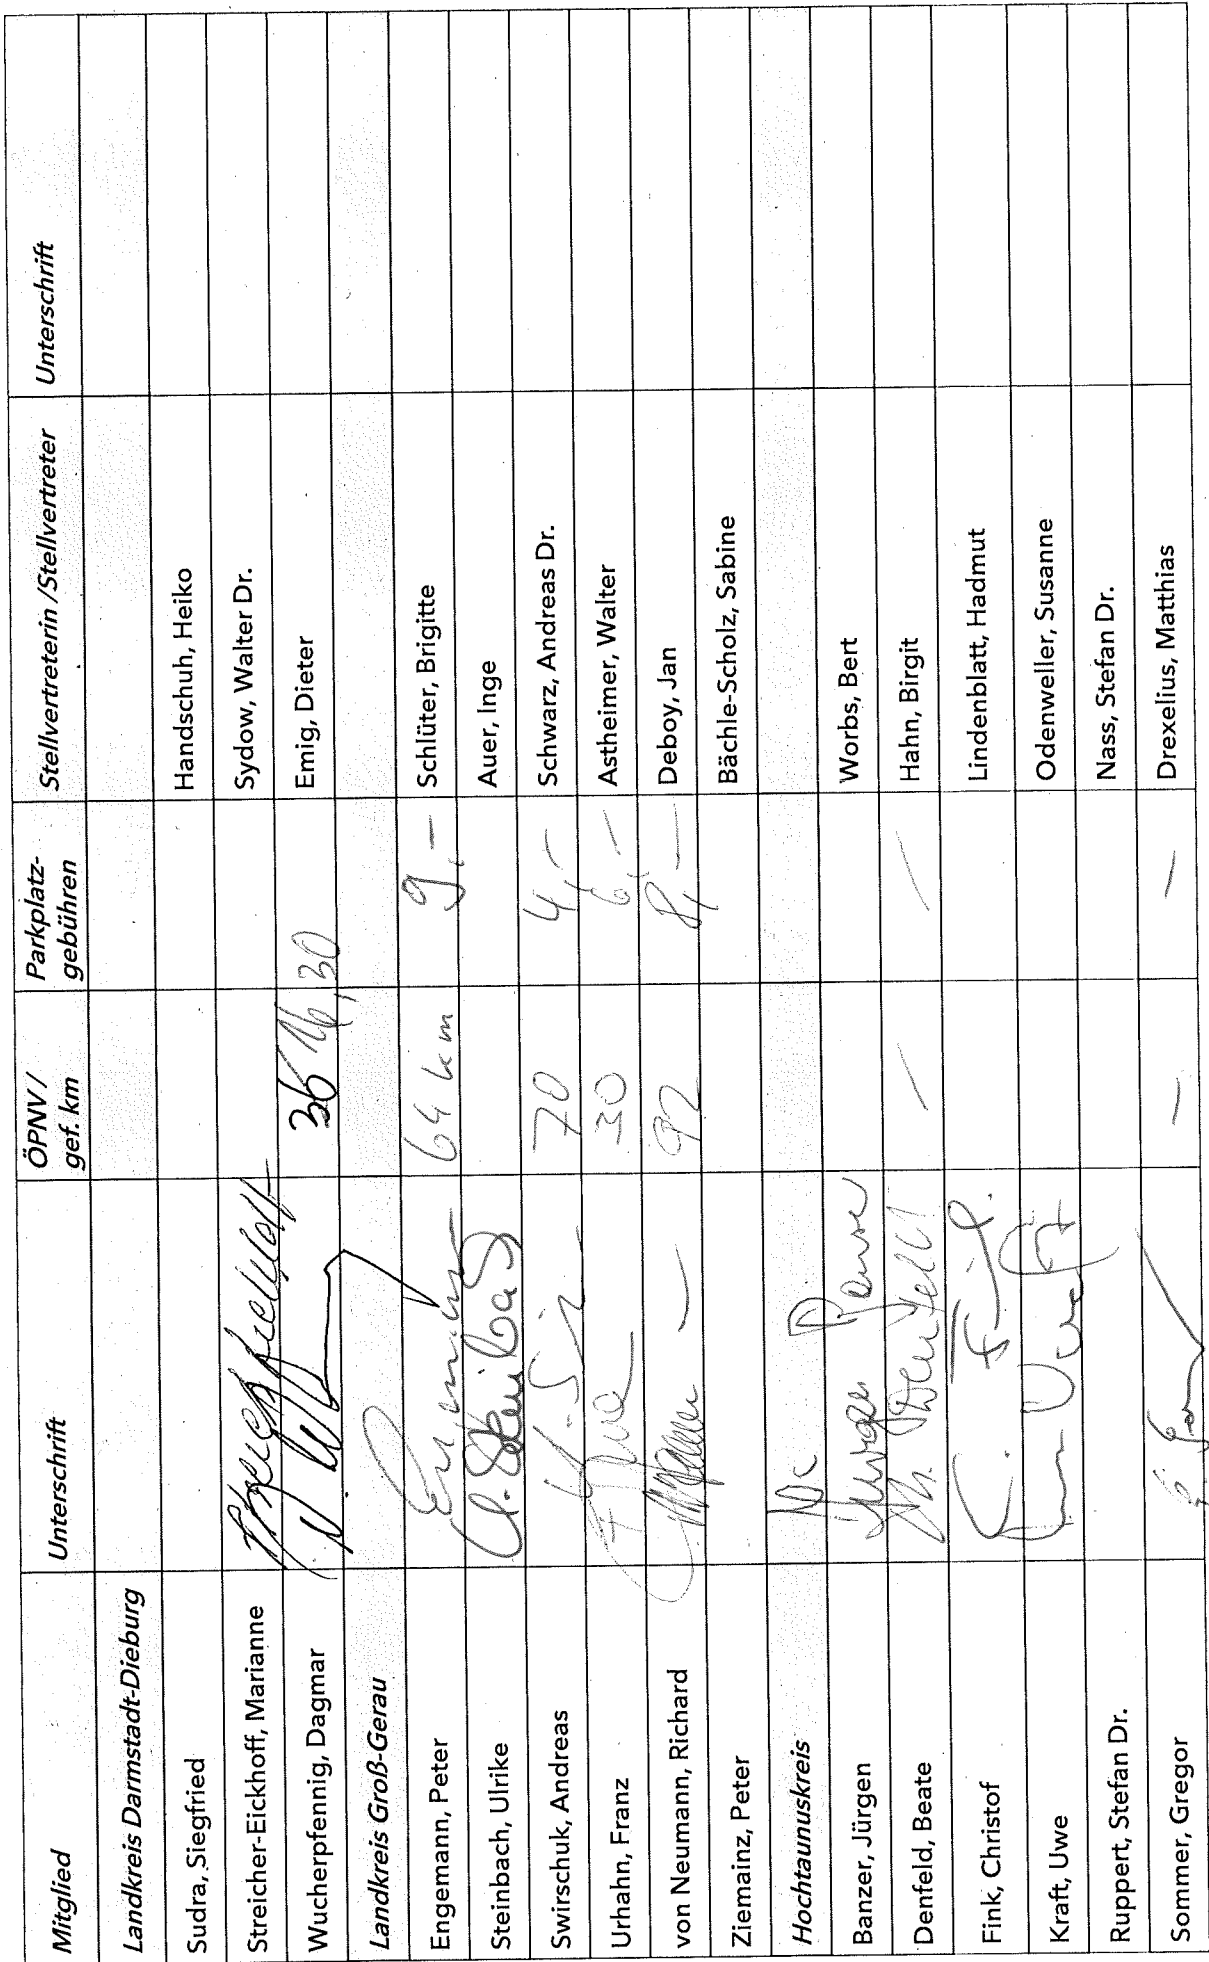 Mitglied Unterschrift ÖPNV / gef. km Parkplatz-gebühren Stellvertreterin /Stellvertreter Unterschrift
Landkreis Darmstadt-Dieburg
Sudra, Siegfried Handschuh, Heiko
Streicher-Eickhoff, Marianne Sydow, Walter Dr.
Wucherpfennig, Dagmar 36 16,30 Emig, Dieter
Landkreis Groß-Gerau
Engemann, Peter 64 km 9,— Schlüter, Brigitte
Steinbach, Ulrike U. Steinbach Auer, Inge
Swirschuk, Andreas 70 4,— Schwarz, Andreas Dr.
Urhahn, Franz 30 6,— Astheimer, Walter
von Neumann, Richard 92 8,— Deboy, Jan
Ziemainz, Peter Bächle-Scholz, Sabine
Hochtaunuskreis
Banzer, Jürgen Worbs, Bert
Denfeld, Beate Denfeld — — Hahn, Birgit
Fink, Christof Lindenblatt, Hadmut
Kraft, Uwe Odenweller, Susanne
Ruppert, Stefan Dr. Nass, Stefan Dr.
Sommer, Gregor — — Drexelius, Matthias